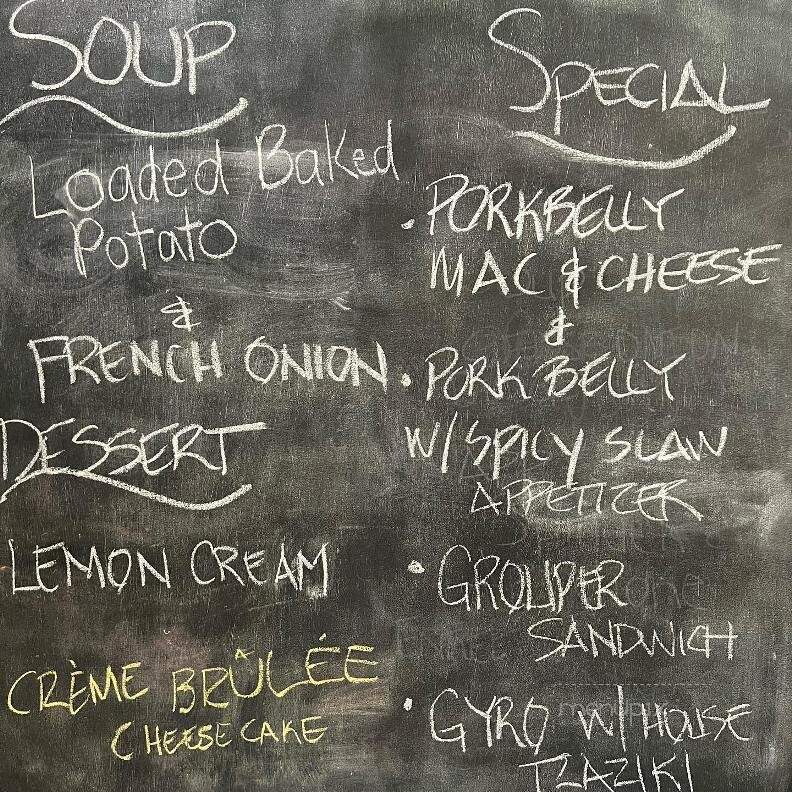 SOUP
Loaded Baked
Potato
&
FRENCH ONION
DESSERT
LEMON CREAM
CRÈME BRÛLÉE
CHEESECAKE
SPECIAL
• PORKBELLY
MAC & CHEESE
&
• PORK BELLY
W/ SPICY SLAW
APPETIZER
• GROUPER
SANDWICH
• GYRO W/ HOUSE
TZAZIKI